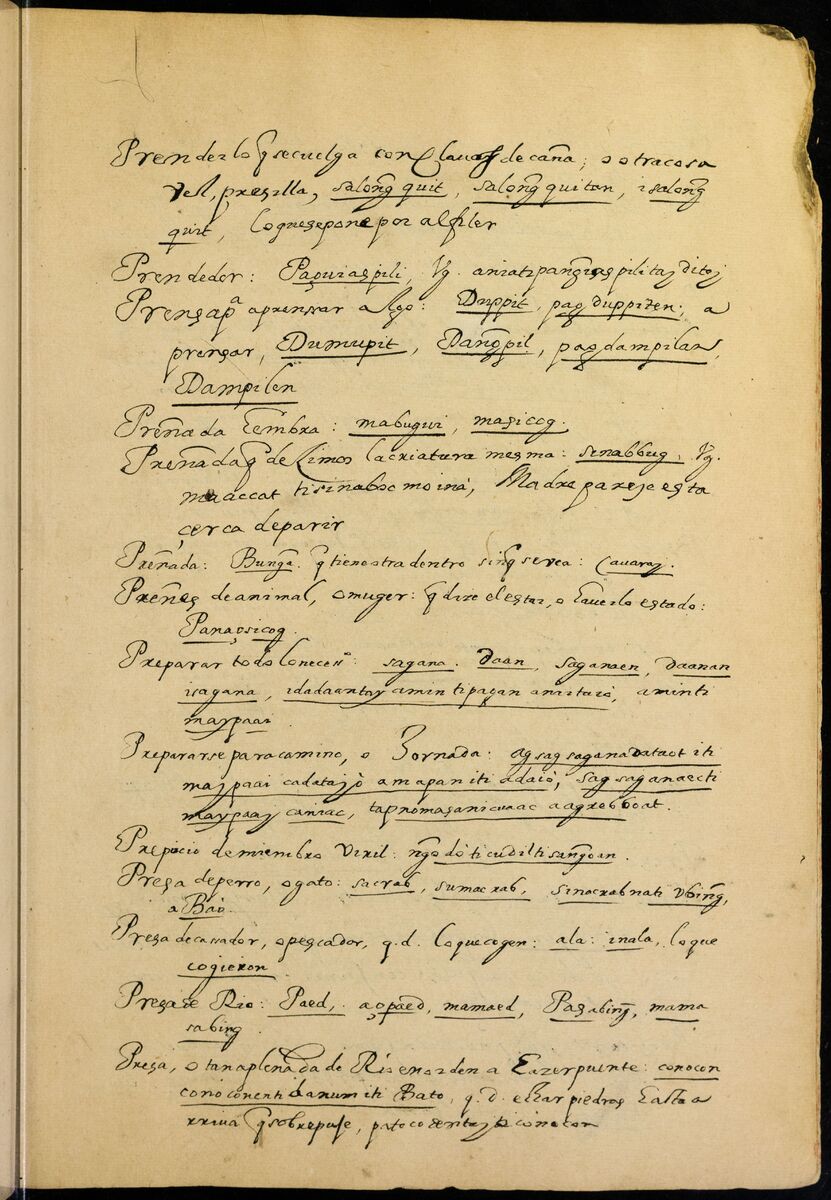 Prender lo q̃ se cuelga con Clavos de caña; o otra cosa
vel, presilla, salong̃quit, salong̃quitan, isalong̃
quit, lo que se pone por alfiler
Prendedor: Paguiaspili, Vg.
Prensa pª aprensar algo: Duppit, pagduppiten; a
prensar, Dumupit, Dang̃pil, pagdampilan,
Dampilen
Preñada hembra: mabugui, masicog.
Preñada q̃ de la criatura mesma: sinabbug, Vg.
maaccat ti sinaboc mo ina, Madre parese esta
çerca de parir
Preñada: Bung̃a. q̃ tiene otra dentro sinq̃ se vea: Cavaraj.
Preñes de animal, o muger: q̃ dize el estar, o haverlo estado:
Panaçsicog.
Preparar todo lo necessº: sagana. Daan, saganaen, daanan
isagana, idadaantay aminti pagan anitaió, aminti
maypaai.
Prepararse para camino, o Jornada: agsagsagana iti
majpaai cadatajò amapan iti adaiò, sagsaganaecti
maypaay caniac, tapno
Prepucio de miembro viril: ng̃odo ti cudil ti
Presa de perro, o gato: sacrab, sumacrab, sinacrabnati Vbing̃,
a Baò.
Presa de cassador, o pescador, q.d. lo que cogen: ala: inala, lo que
cogieron
Presa de Rio: Paed, agpaed, mamaed, Pasabing̃, mama
sabing.
Presa, o tanaplenada de Rio en orden a hazer puente: conocon
conoconenti danum iti Bato, q. d. echar piedras hasta a
rriva q̃ sobrepuje,